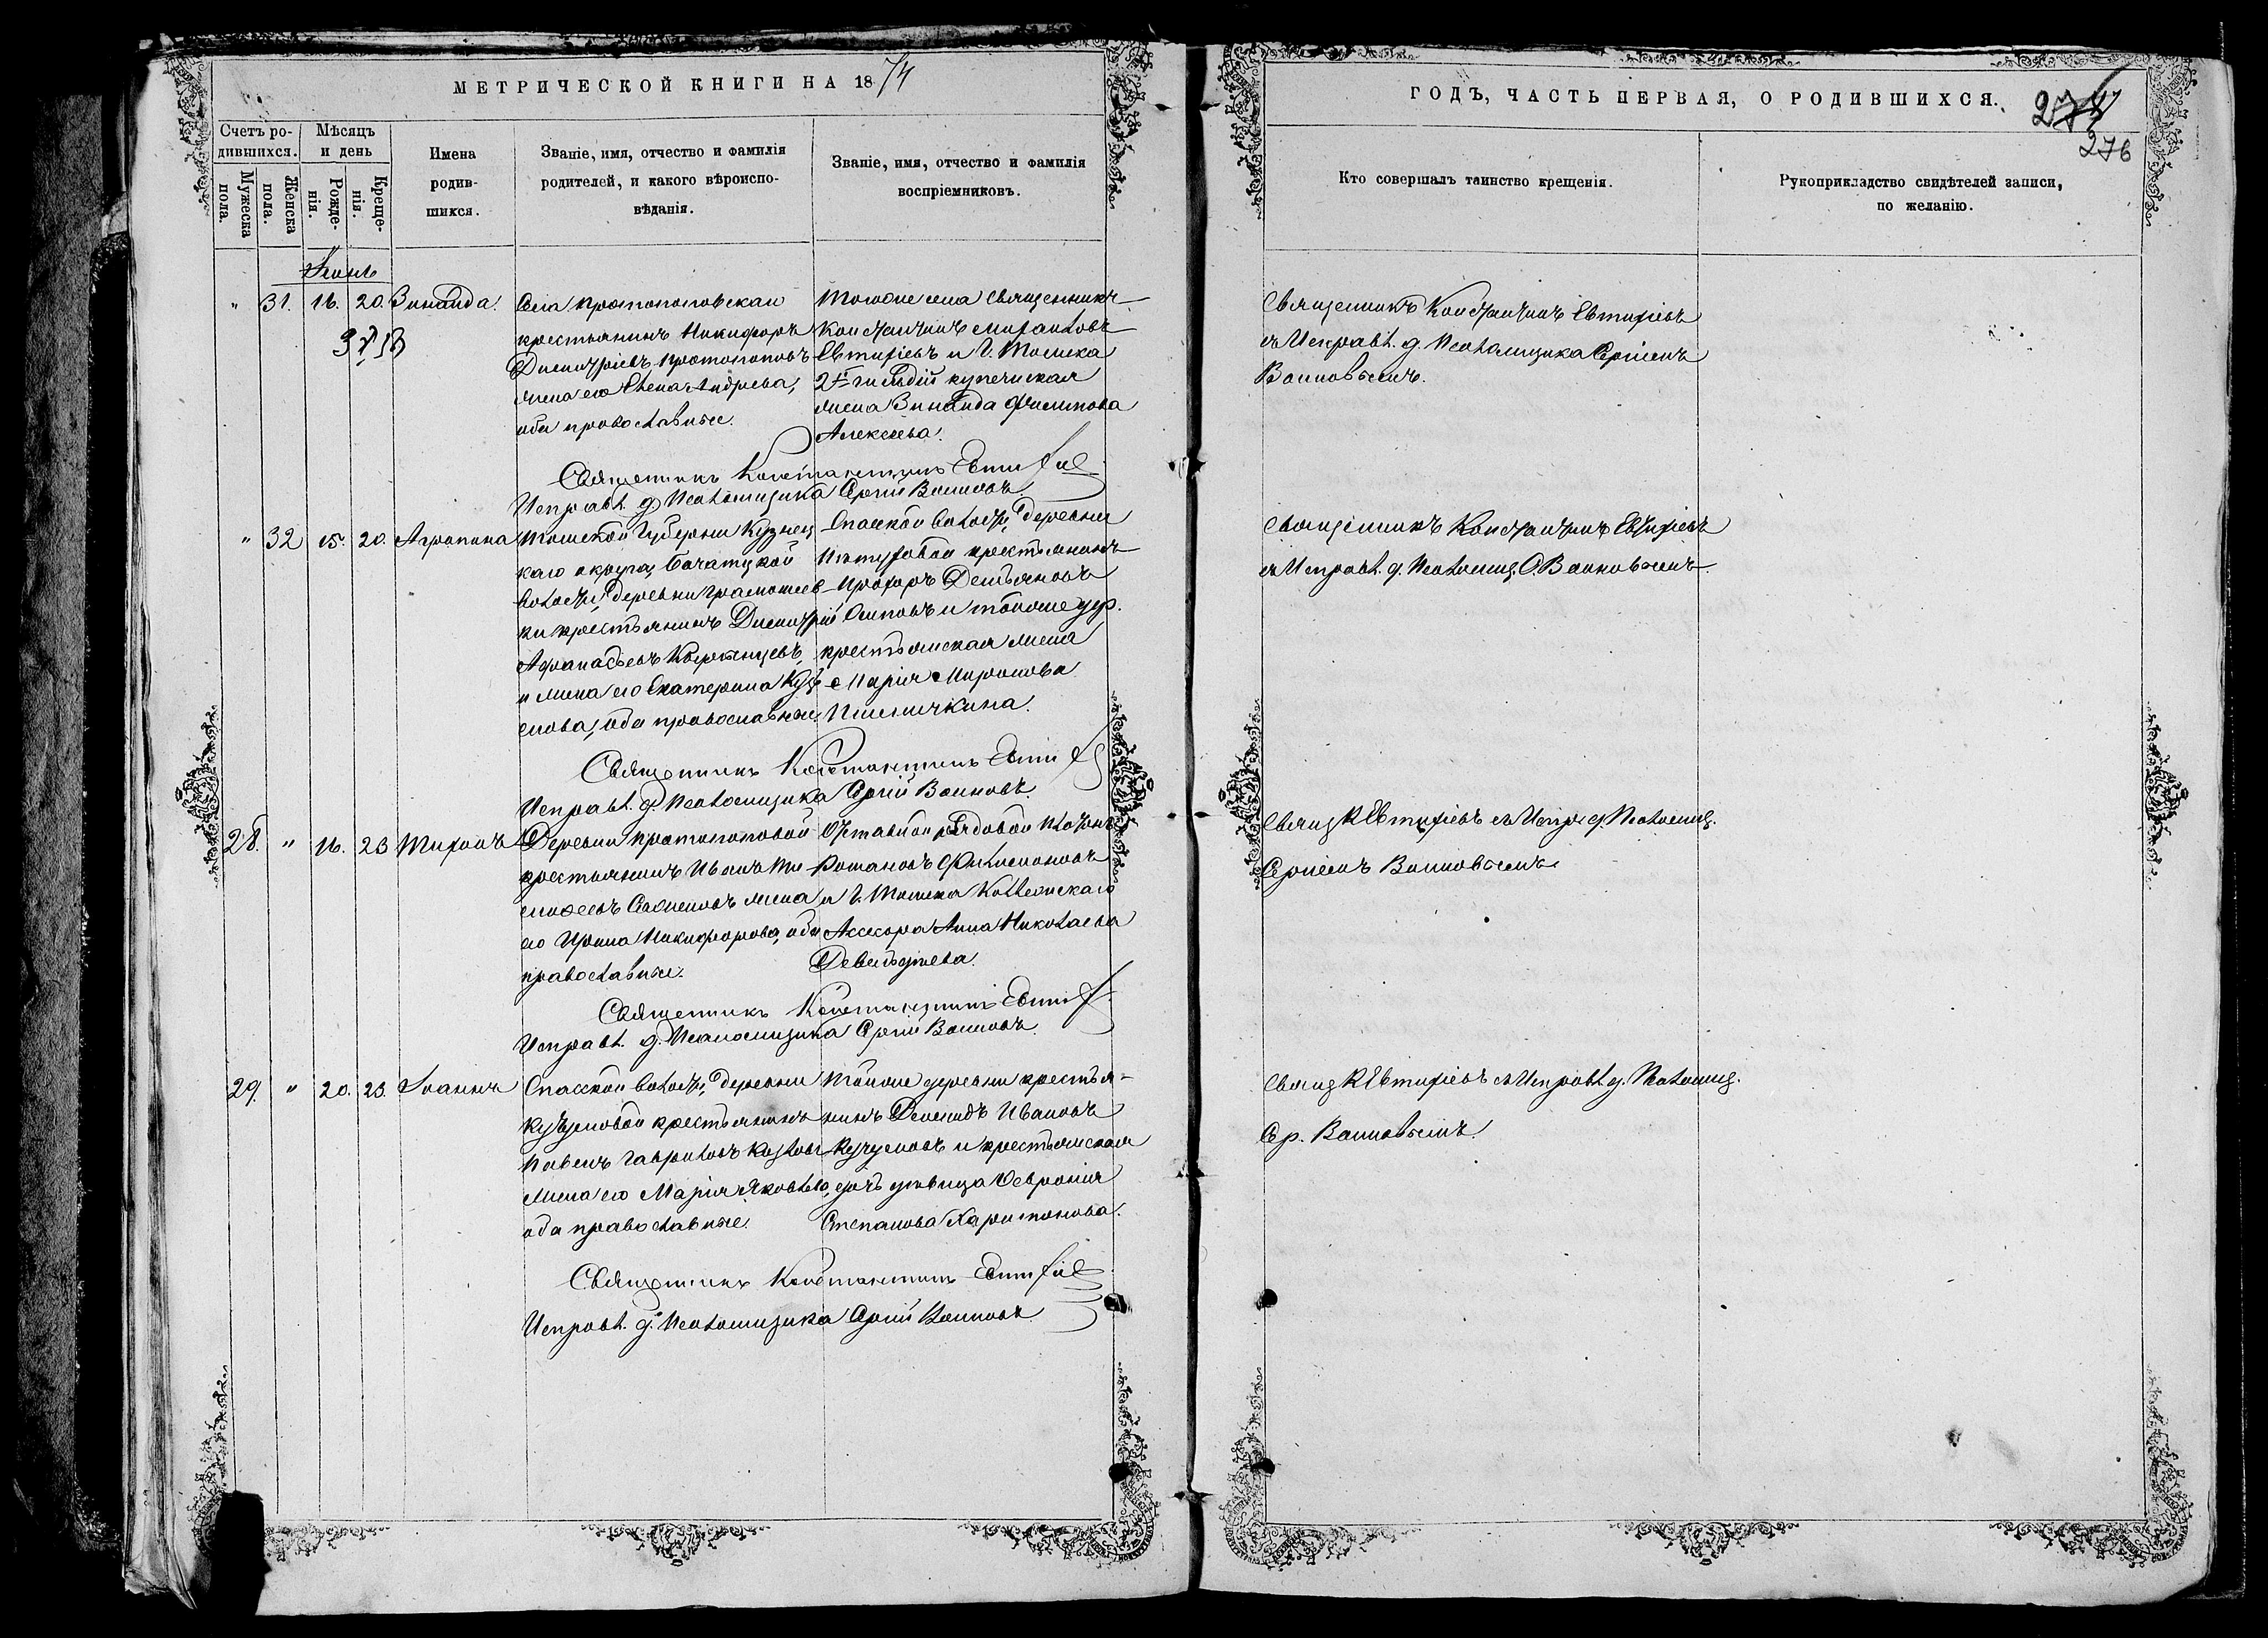 МЕТРИЧЕСКОЙ КНИГИ НА 1874
Счетъ ро-
дившихся.
Мѣсяцъ
и день
Мужеска
пола.
Женска
пола.
Рожде-
нія.
Креще-
нія.
Имена
родив-
шихся.
Званіе, имя, отчество и фамилія
родителей, и какого вѣроиспо-
вѣданія.
Званіе, имя, отчество и фамилія
воспріемниковъ.
Іюнь
" 31. 16. 20. Зинаида.
Села Протопоповскаго
крестьянинъ Никифоръ
Димитріевъ Протопоповъ
жена его Елена Андреева,
оба православные.
Тогоже села Священникъ
Константинъ Михаиловъ
Евтихіевъ и г. Томска
2й гильдіи купеческая
жена Зинаида Филипова
Алексеева.
Священникъ Константинъ Евтихіев
Исправл. д. Псаломщика Сергій Воиновъ
" 32 15. 20. Агрипина
Томской Губерніи Кузнец
каго округа, Бачатской
волости, деревни Грамотеев
ки крестьянинъ Димитрій
Афанасьевъ
и жена его Екатерина Куз
мова, оба православные.
Спасской волости, деревни
крестьянинъ
Прохоръ Демьяновъ
Осиповъ и тойже дер.
крестьянская жена
Марія Миронова
Пшеничкина.
Священникъ Константинъ Евтих
Исправл. д. Псаломщика Сергій Воиновъ.
28. " 16. 23 Тихонъ
Деревни Протопоповой
крестьянинъ Иванъ Ти
мофеевъ жена
его Ирина Никифорова, оба
православные.
Отставной рядовой Платонъ
Романовъ Филимоновъ
и г. Томска Коллежскаго
Асесора Анна Николаева
Священникъ Константинъ Евтих
Исправл. д. Псаломщика Сергій Воиновъ.
29. " 20. 23. Іоаннъ
Спасской волости, деревни
Кучумовой крестьянинъ
Павелъ Гавриловъ Козлов
жена его Марія Яковлева,
оба православные.
Тойже деревни крестья-
нинъ Демидъ Ивановъ
Кучумовъ и крестьянская
дочь девица Февронія
Степанова Харитонова.
Священникъ Константинъ Евтихіе
Исправл. д. Псаломщика Сергій Воиновъ.
ГОДЪ, ЧАСТЬ ПЕРВАЯ, О РОДИВШИХСЯ.
276
Кто совершалъ таинство крещенія.
Рукоприкладство свидѣтелей записи,
по желанію.
Священникъ Константинъ Евтихіевъ
съ Исправл. д. Псаломщика Сергіемъ
Воиновымъ.
Священникъ Константинъ Евтихіевъ
съ Исправл. д. Псаломщ. С. Воиновымъ
Свящ К Евтихіевъ съ Испр д. Псаломщ.
Сергіемъ Воиновымъ
Свящ К Евтихіевъ съ Исправл д. Псаломщ.
Сер. Воиновымъ.